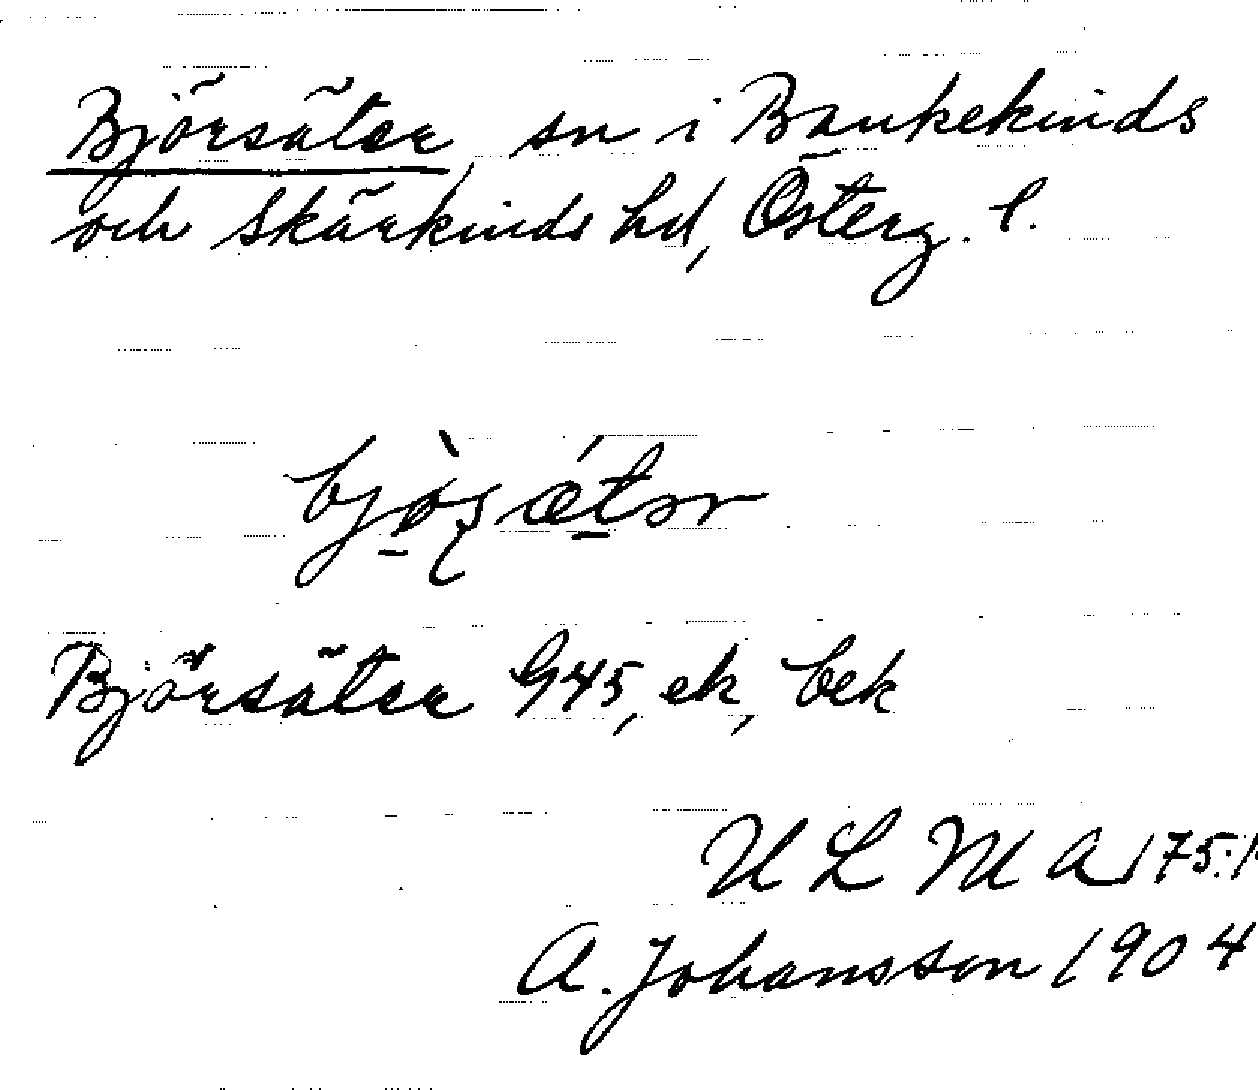 Björsäter, sn i Bankekinds
och Skärkinds hd, Österg. l.
Björsäter G45, ek, bek
U L M A 175:1
A. Johansson 1904